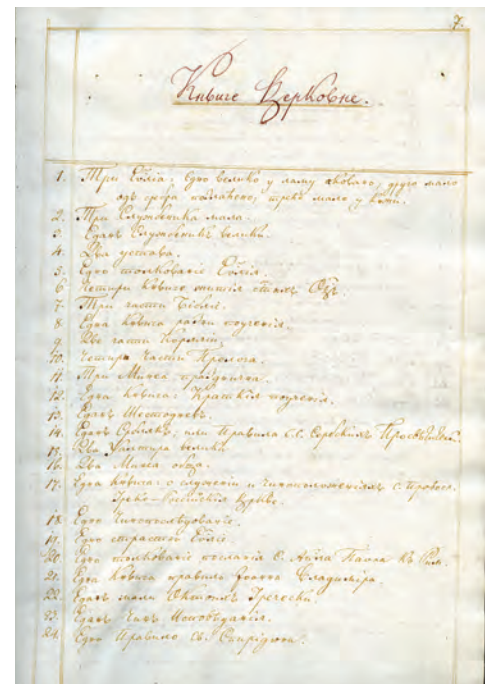 7.
Књиге Церковне.
1. Три Еѵлія: Едно велико у ламу оковано, друго мало
одъ сребра позлаћено, треће мало у кожи.
2. Три Служебника мала.
3. Еданъ Служебникъ великій.
4. Два устава.
5. Едно толкованіе Еѵлія.
6. Четири књиге житія
7. Три части Бібліе.
8. Една књига разни поученія.
9. Две части Кормчіи.
10. Четири части Пролога.
11. Три Минеа празднична.
12. Една књига: Краткія поученія.
13. Еданъ Шестодневъ.
14. Еданъ Србльакъ, или Правила С.С. Сербскихъ Просвѣтителей.
15. Два Ѱалтира велика
16. Два Минеа обща.
17. Една књига: о служеніи и чиноположеніяхъ с. Правосл.
Греко-Россійскія Цркве.
18. Едно Чинопослѣдованіе.
19. Едно страстно Еѵліе.
20. Едно толкованіе посланія С. Апла Павла къ Рим.
21. Една књига правило Іоанна Владиміра.
22. Еданъ мали Октоихъ Греческій.
23. Еданъ Чинъ Исповѣданія.
24. Едно Правило Св. Спиридона.